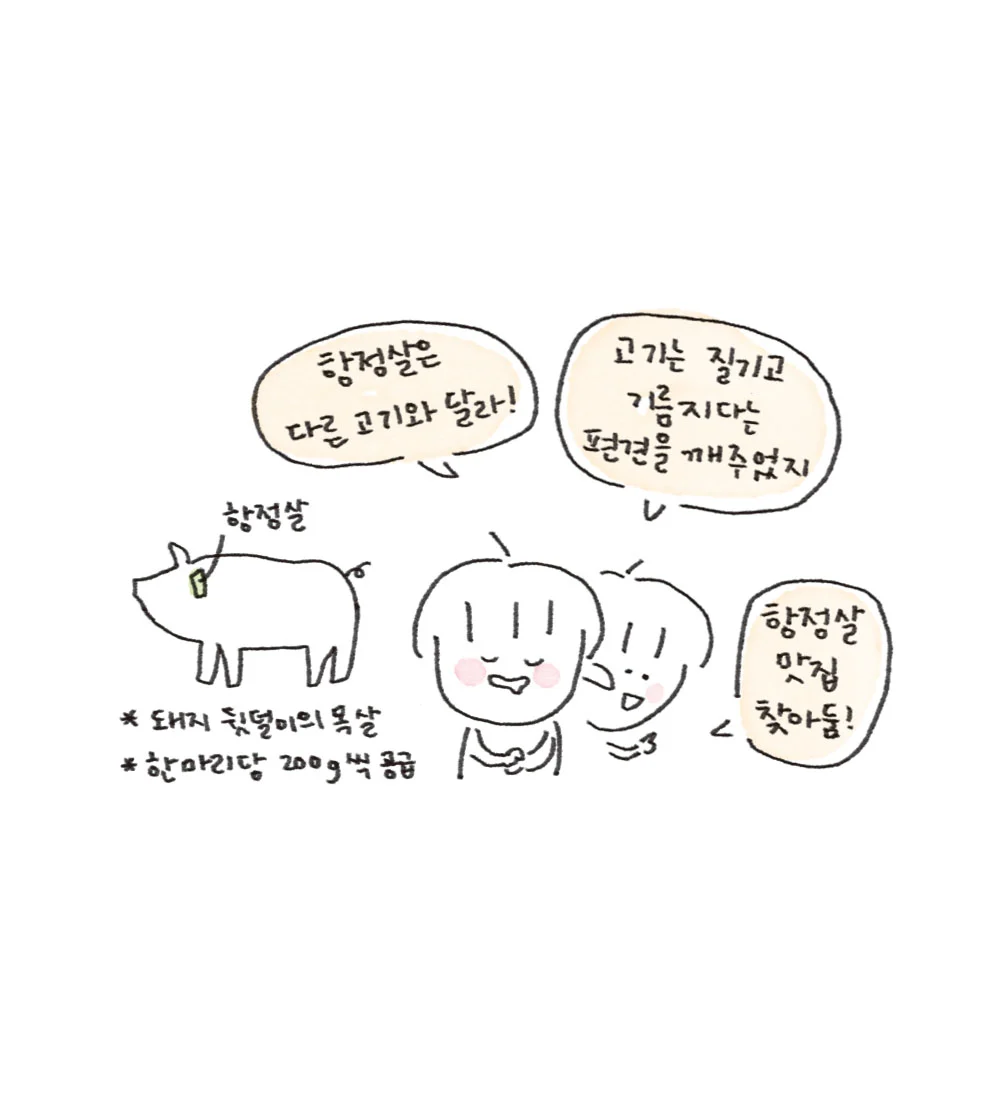 항정살은
다른 고기와 달라!
고기는 질기고
기름지다는
편견을 깨주었지
항정살
* 돼지 뒷덜미의 목살
* 한마리당 200g씩 공급
항정살
맛집
찾아둠!